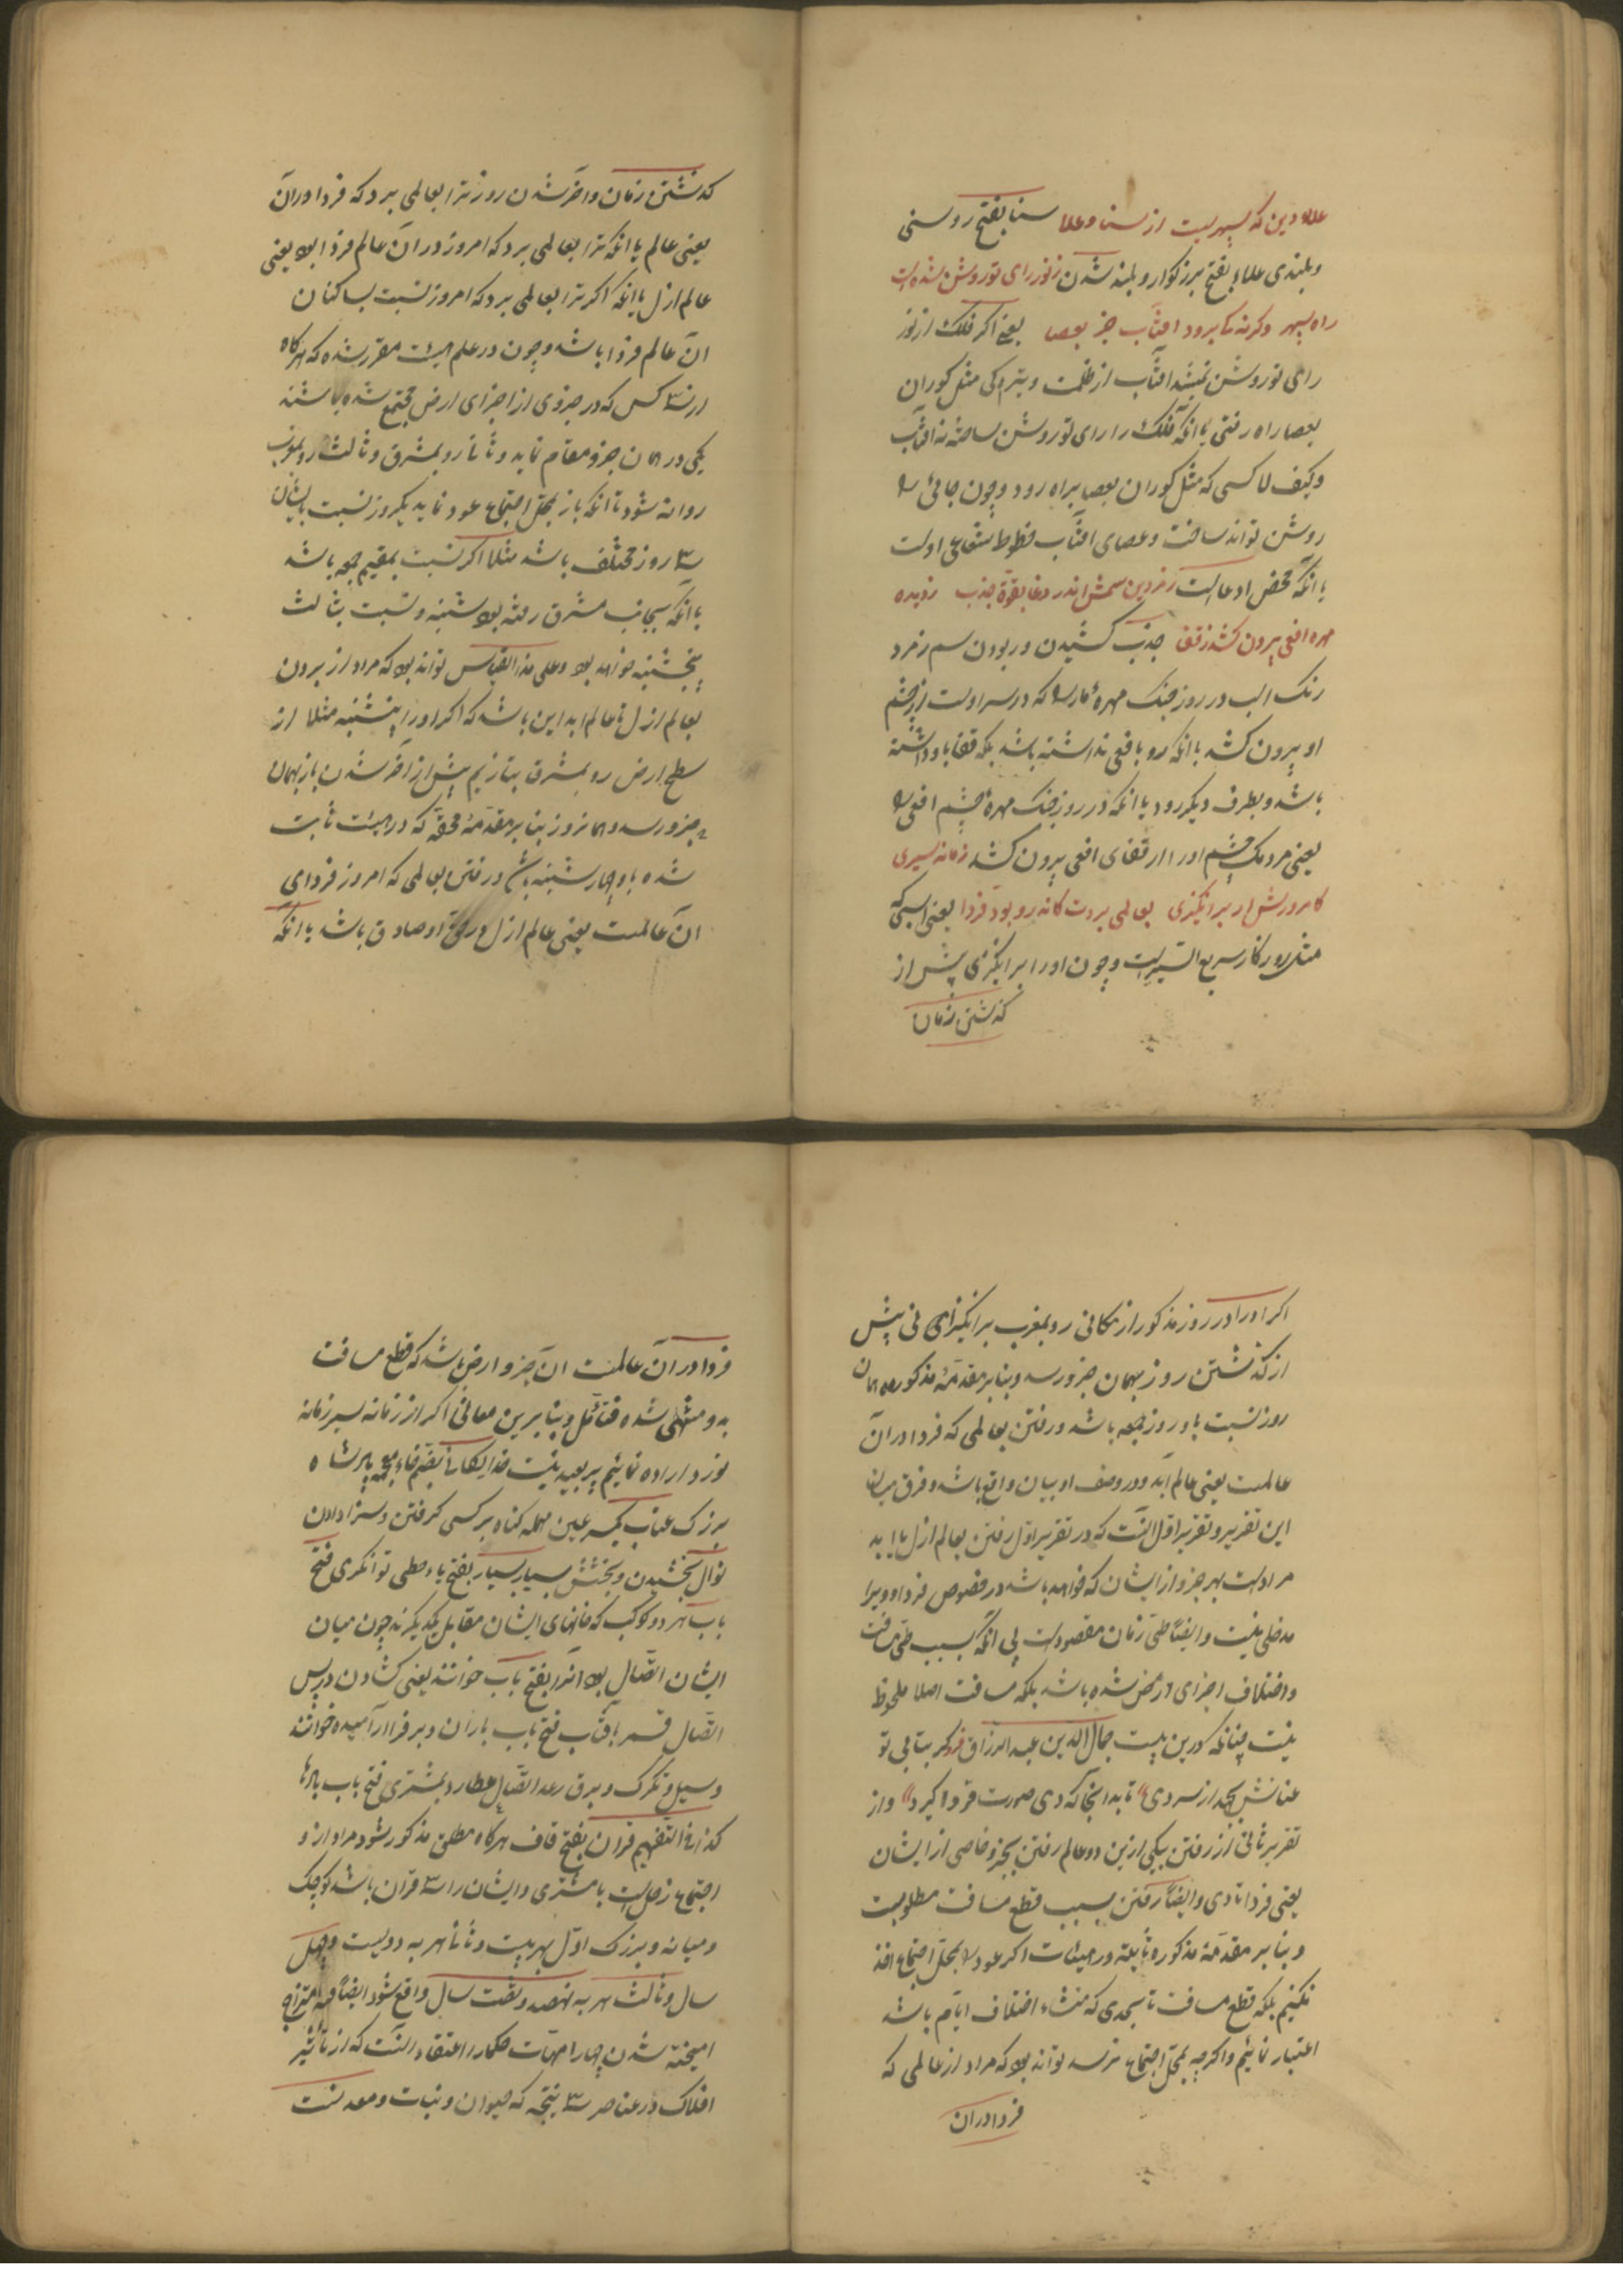 علاء دین که سپهریست از سنا و علا سنا بفتح روشنی
و بلندی علاء بفتح بزرگوار و بلند شدن ز نور رای تو روشن شده است
راه سپهر وگرنه کا برود افتاب جز بعصا یعنی اگر فلک از نور
رای تو روشن نمیشد افتاب از ظلمت و تیرگی مثل کوران
بعصا راه رفتی یا انکه فلک را رای تو روشن ساخته نه افتاب
و کیف لا کسی که مثل کوران بعصا براه رود چون جائی را
روشن تواند ساخت و عصای افتاب خطوط شعاعی اوست
یا انکه محض ادعاست زمردین سمش اندر وغا بقوة جذب ز دیده
مهره افعی برون کشد ز قفا جذب کشیدن و ربودن سم زمرد
رنک اسب در روز جنک مهره مار را که در سر اوست از چشم
او بیرون کشد با انکه رو بافعی نداشته باشد بلکه قفا باو داشته
باشد و بطرف دیکر رود یا انکه در روز جنک مهره چشم افعی را
یعنی مردمک چشم او را از قفای افعی بیرون کشد زمانه سیری
کامروزش ار برانکیزی بعالمی بردت کاندرو بود فردا یعنی اسبی که
مثل روزکار سریع السیر است و چون او را برانکیزی پیش از
کذشتن زمان
کذشتن زمان و اخر شدن روز ترا بعالمی برد که فردا در آن
یعنی عالم یا انکه ترا بعالمی برد که امروز در آن عالم فردا بود یعنی
عالم ازل یا انکه اکر ترا بعالمی برد که امروز نسبت بساکنان
آن عالم فردا باشد و چون در علم هیئت مقرر شده که هرکاه
از سه کس که در جزوی از اجزای ارض مجتمع شده باشند
یکی در همان جزو مقام نماید و ثانی رو بمشرق و ثالث رو بمغرب
روانه شود تا انکه باز بمحل اجتماع عود نماید یکروز نسبت بایشان
سه روز مختلف باشد مثلا اکر نسبت بمقیم جمعه باشد
با انکه بجانب مشرق رفته بود شنبه و نسبت بثالث
پنجشنبه خواهد بود و علی هذا القیاس تواند بود که مراد از بردن
بعالم ازل یا عالم ابد این باشد که اکر او را پنجشنبه مثلا از
سطح ارض رو بمشرق بتازیم پیش از اخر شدن باز بهمان
جزو رسد و همان روز بنابر مقدمهٔ محققه که در هیئت ثابت
شده باو چهارشنبه باشد و رفتن بعالمی که امروز فردای
آن عالمست یعنی عالم ازل در حق او صادق باشد یا انکه
اکر او را در روز مذکور از مکانی رو بمغرب برانکیزی فی پیش
از کذشتن روز بهمان جزو رسد و بنابر مقدمهٔ مذکوره همان
روز نسبت باو روز جمعه باشد و رفتن بعالمی که فردا در آن
عالمست یعنی عالم ابد و در وصف او بیان واقع باشد و فرق میان
این تقریر و تقریر اوّل آنست که در تقریر اوّل رفتن بعالم ازل یا ابد
مراد است بهر جزو از ایشان که خواهد باشد و خصوص فردا و دیرا
مدخلی نیست و ایضًا طی زمان مقصودست بی انکه بسبب طی مسافت
و اختلاف اجزای ارض شده باشد بلکه مسافت اصلا ملحوظ
نیست چنانکه درین بیت جمال الدین عبد الرزاق فرو کر بتابی تو
عنانش بجهد از سر دی تا بدانجا که دی صورت فردا کیرد و از
تقریر ثانی از رفتن بیکی ازین دو عالم رفتن بجزو خاصی از ایشان
یعنی فردا تا دی و ایضًا رفتن بسبب قطع مسافت مطلوبست
و بنابر مقدمهٔ مذکوره ثابته در هیئات اکر عود را بمحل اجتماع اخذ
نکنیم بلکه قطع مسافت تا بحدی که منشاء اختلاف ایام باشد
اعتبار نمائیم و اکرچه بمحل اجتماع نرسد تواند بود که مراد از عالمی که
فردا در آن
فردا در آن عالمست آن جزو ارض باشد که قطع مسافت
بدو منتهی شده فتأمل و بنابرین معانی اکر از زمانه سیر زمانه
نورد اراده نمائیم بعید نیست خدایکانا بضم فاء معجمه پادشاه
بزرک عتاب بکسر عین مهمله کناه بر کسی کرفتن و سزا دادن
نوال بخشیدن و بخشش بسیار یسار بفتح یاء حطی توانکری فتح
باب هر دو کوکب که خانهای ایشان مقابل یکدیکرند چون میان
ایشان اتصال بود آنرا بفتح باب خوانند یعنی کشادن در پس
اتصال قمر بآفتاب فتح باب باران و برف آرامیده خوانند
و سیل و تکرک و برق رعد اتصال عطارد بمشتری فتح باب بادها
کذا فی التفهیم قران بفتح قاف هرکاه مطلق مذکور شود مراد ازو
اجتماع زحلست با مشتری و ایشان را سه قران باشد کوچک
و میانه و بزرک اوّل بهر بیست و ثانی بهر دویست و چهل
سال و ثالث بهر نهصد و شصت سال واقع شود ایضًا فیه امتزاج
امیخته شدن چهار امهات حکما را اعتقاد آنست که از تأثیر
افلاک در عناصر سه نتیجه که حیوان و نبات و معدنست